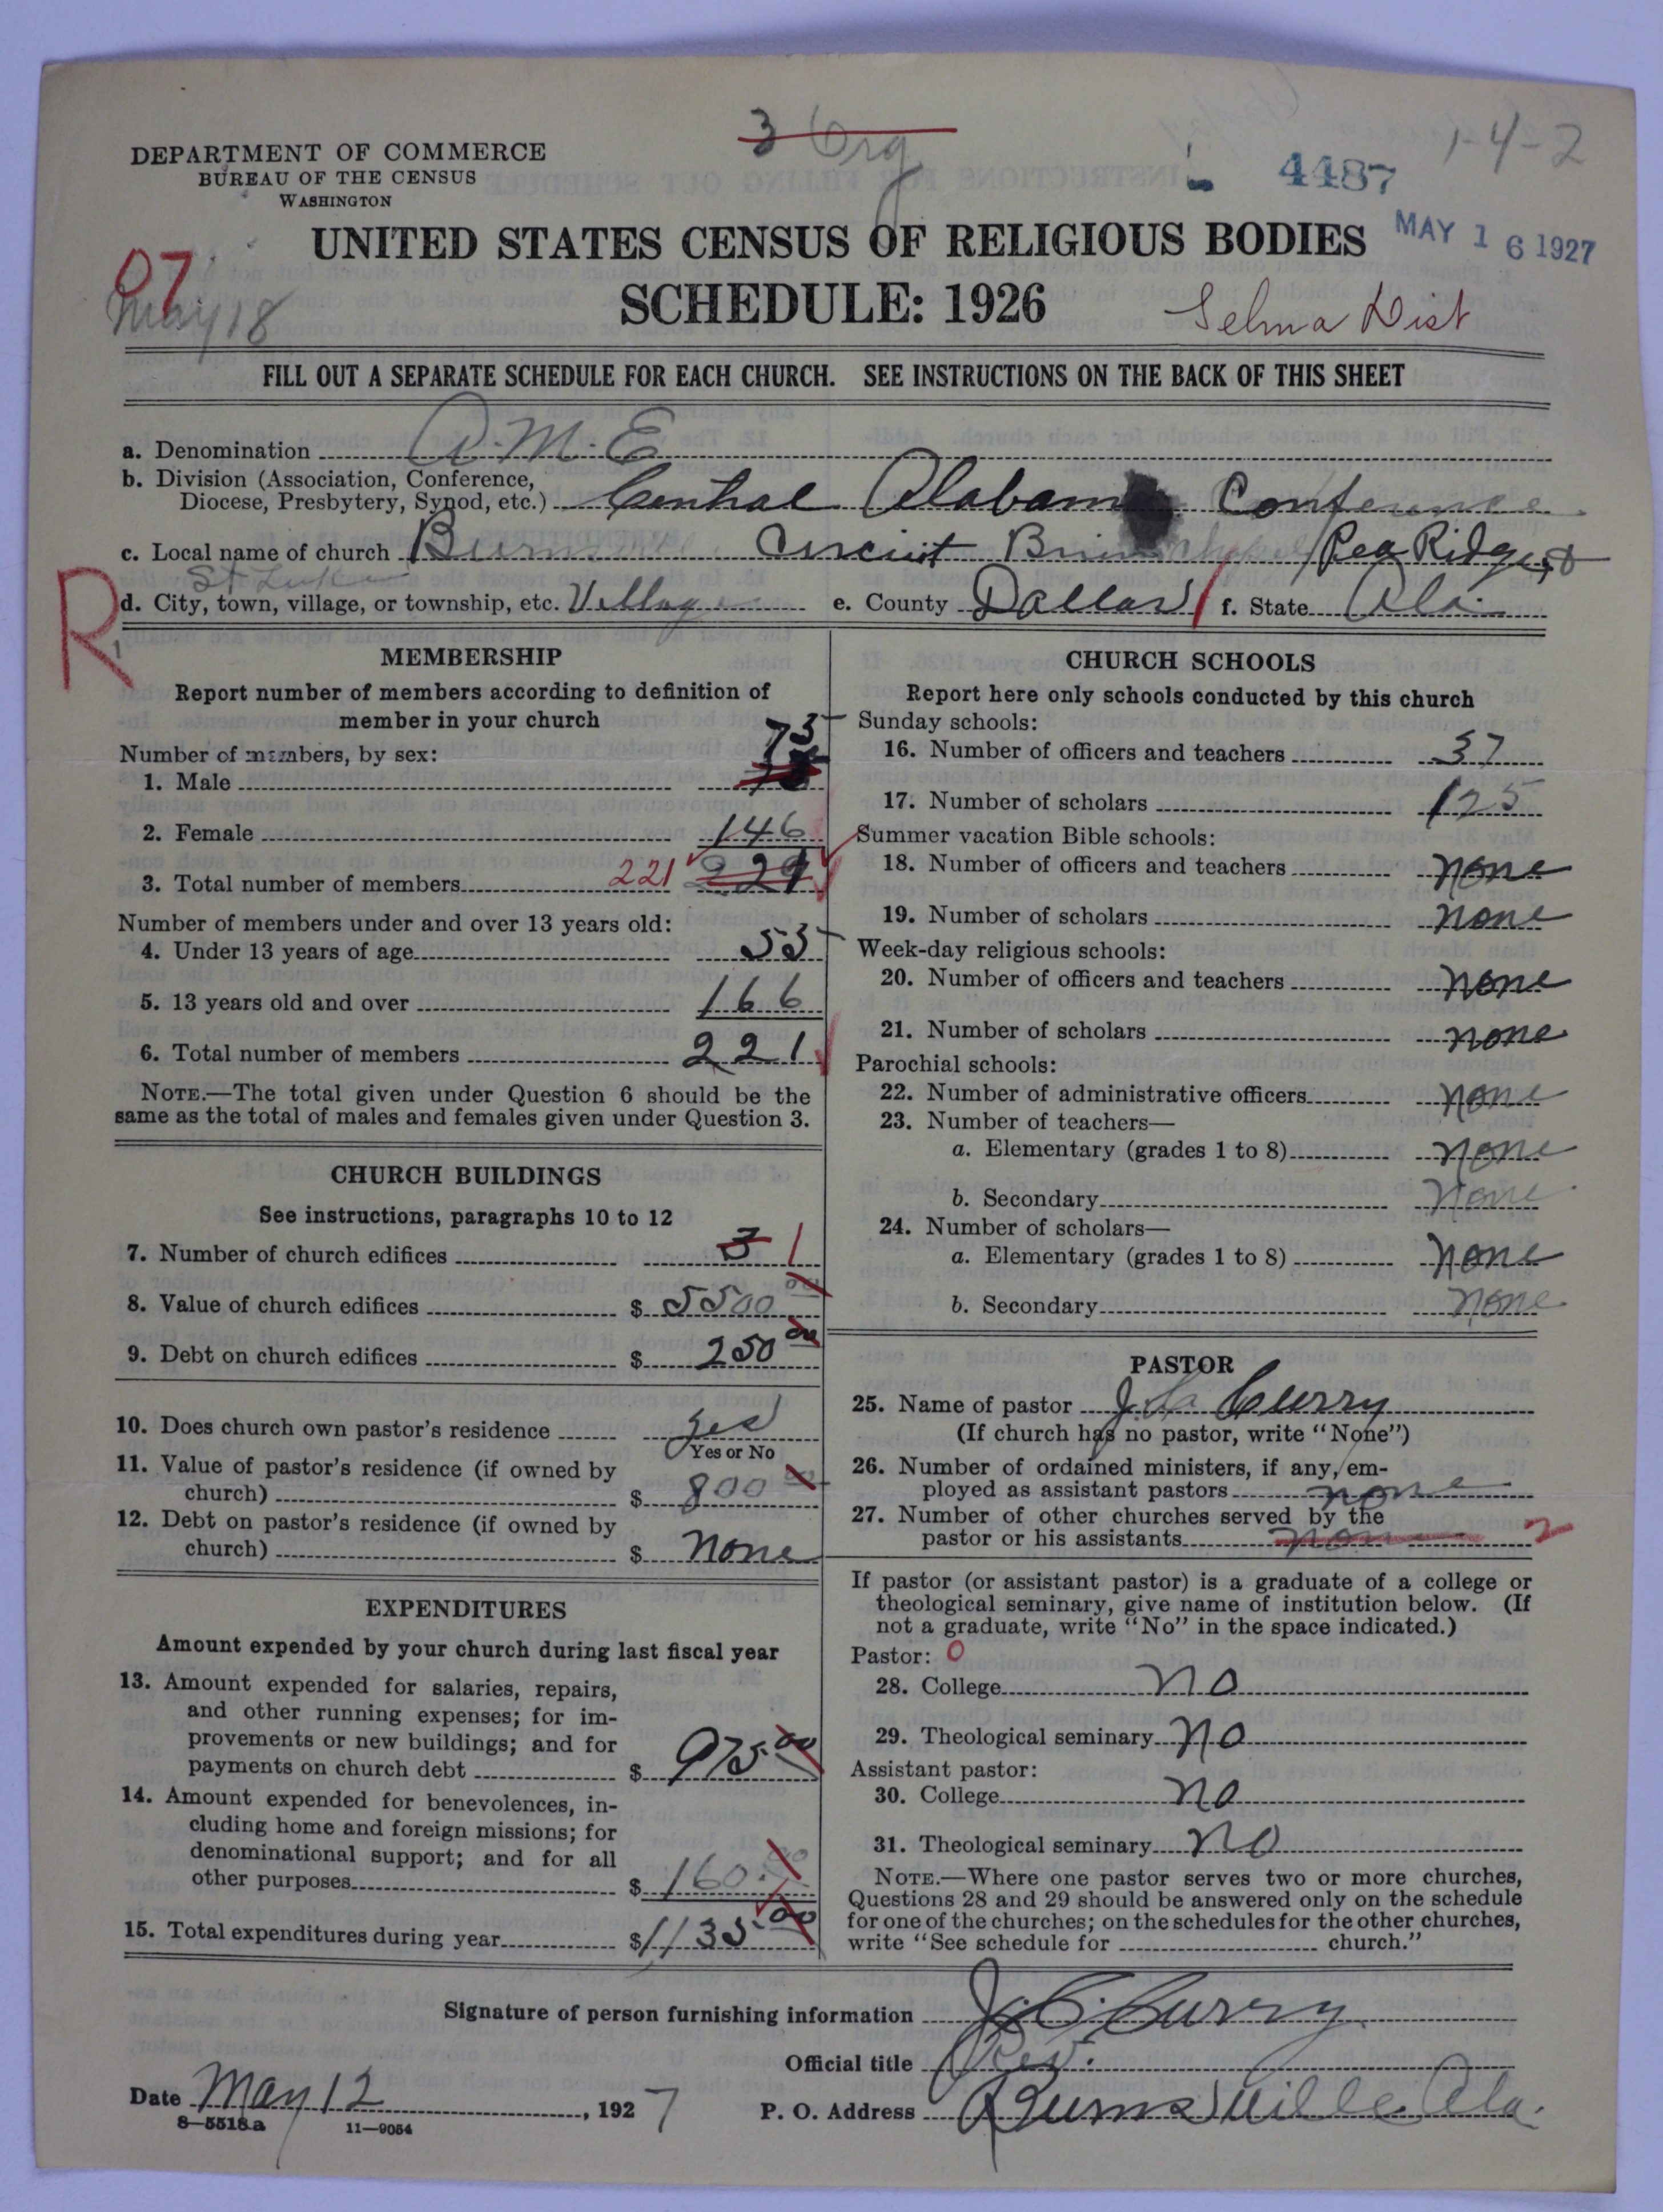 3 Org
1-4-2
DEPARTMENT OF COMMERCE
BUREAU OF THE CENSUS
WASHINGTON
4487
MAY 16 1927
UNITED STATES CENSUS OF RELIGIOUS BODIES
SCHEDULE: 1926
07
May 18
Selma Dist
FILL OUT A SEPARATE SCHEDULE FOR EACH CHURCH. SEE INSTRUCTIONS ON THE BACK OF THIS SHEET
a. Denomination A.M.E
b. Division (Association, Conference,
Diocese, Presbytery, Synod, etc.) Central Alabama Conference
c. Local name of church Circuit Pea Ridge
St Luke
R
d. City, town, village, or township, etc. Village e. County Dallas f. State Ala.
MEMBERSHIP
Report number of members according to definition of
member in your church
Number of members, by sex:
75
1. Male
2. Female 146
3. Total number of members 221 221
Number of members under and over 13 years old:
4. Under 13 years of age 55
5. 13 years old and over 166
6. Total number of members 221
NOTE.—The total given under Question 6 should be the
same as the total of males and females given under Question 3.
CHURCH BUILDINGS
See instructions, paragraphs 10 to 12
7. Number of church edifices 3 1
8. Value of church edifices $ 5500 00
9. Debt on church edifices $ 250 00
10. Does church own pastor's residence Yes
Yes or No
11. Value of pastor's residence (if owned by
church) $ 800 00
12. Debt on pastor's residence (if owned by
church) $ None
EXPENDITURES
Amount expended by your church during last fiscal year
13. Amount expended for salaries, repairs,
and other running expenses; for im-
provements or new buildings; and for
payments on church debt $ 975.00
14. Amount expended for benevolences, in-
cluding home and foreign missions; for
denominational support; and for all
other purposes $ 160.00
15. Total expenditures during year $ 1135.00
CHURCH SCHOOLS
Report here only schools conducted by this church
Sunday schools:
16. Number of officers and teachers 37
17. Number of scholars 125
Summer vacation Bible schools:
18. Number of officers and teachers none
19. Number of scholars none
Week-day religious schools:
20. Number of officers and teachers none
21. Number of scholars none
Parochial schools:
22. Number of administrative officers none
23. Number of teachers—
a. Elementary (grades 1 to 8) none
b. Secondary None
24. Number of scholars—
a. Elementary (grades 1 to 8) None
b. Secondary none
PASTOR
25. Name of pastor J. C. Curry
(If church has no pastor, write "None")
26. Number of ordained ministers, if any, em-
ployed as assistant pastors none
27. Number of other churches served by the
pastor or his assistants none 2
If pastor (or assistant pastor) is a graduate of a college or
theological seminary, give name of institution below. (If
not a graduate, write "No" in the space indicated.)
Pastor: 0
28. College no
29. Theological seminary no
Assistant pastor:
30. College no
31. Theological seminary no
NOTE.—Where one pastor serves two or more churches,
Questions 28 and 29 should be answered only on the schedule
for one of the churches; on the schedules for the other churches,
write "See schedule for church."
Signature of person furnishing information J. C. Curry
Official title Rev.
Date May 12, 1927 P. O. Address Burnsville Ala.
8—5518a 11—9054